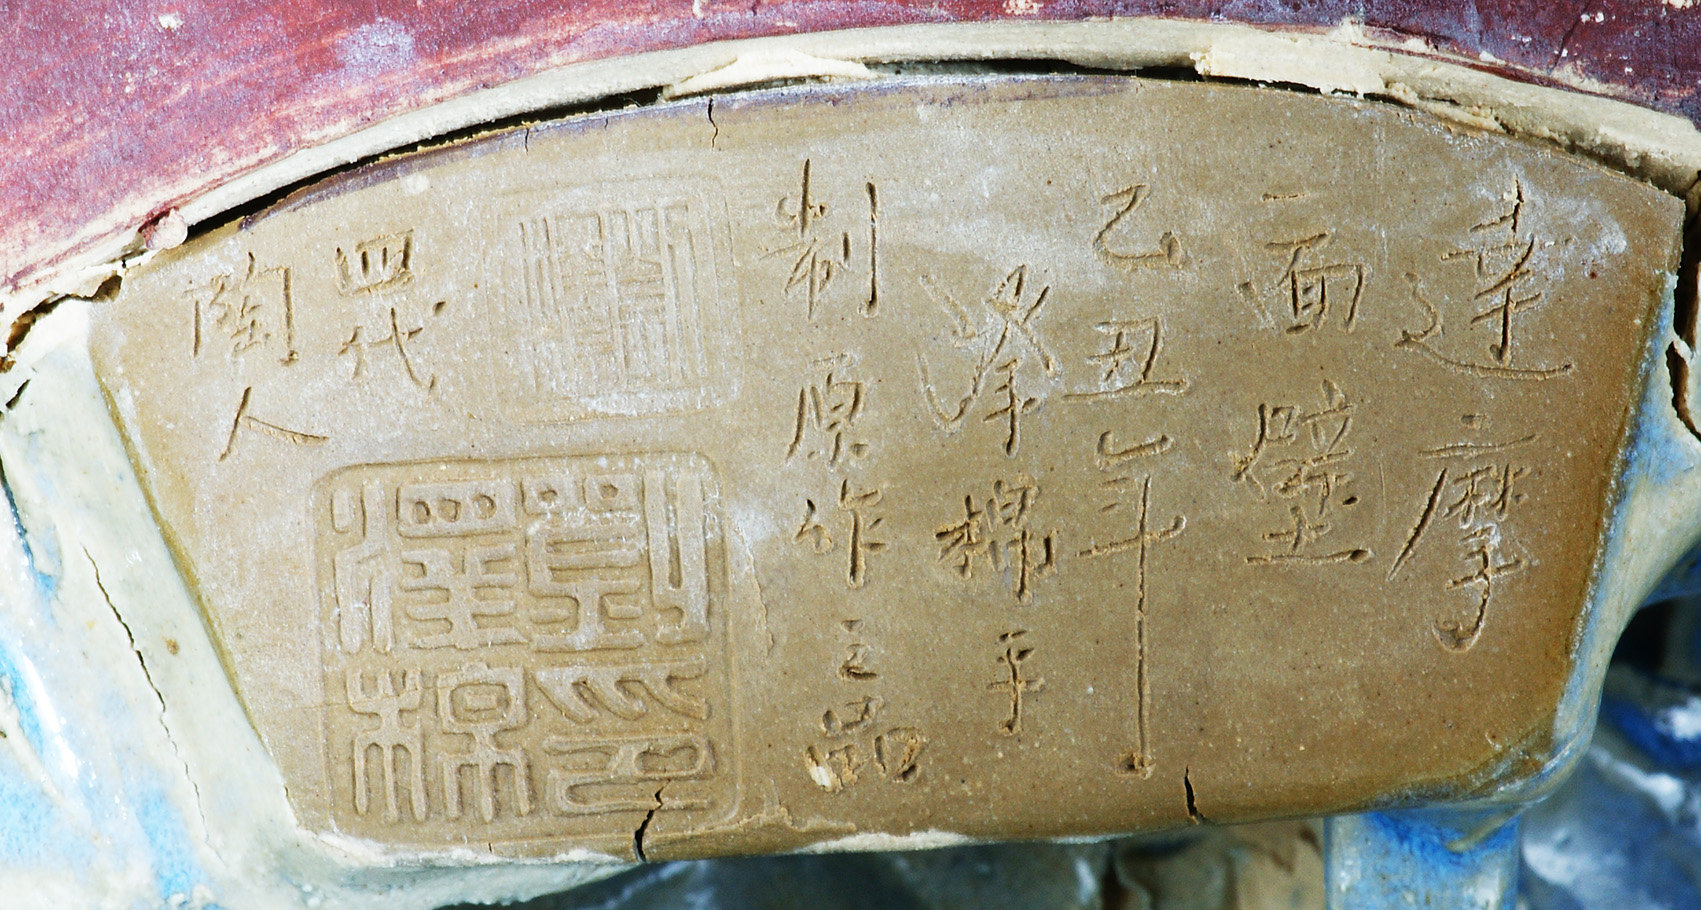 達摩
面壁
乙丑年
泽棉手
制原作之品
四代
陶人
劉印
澤棉